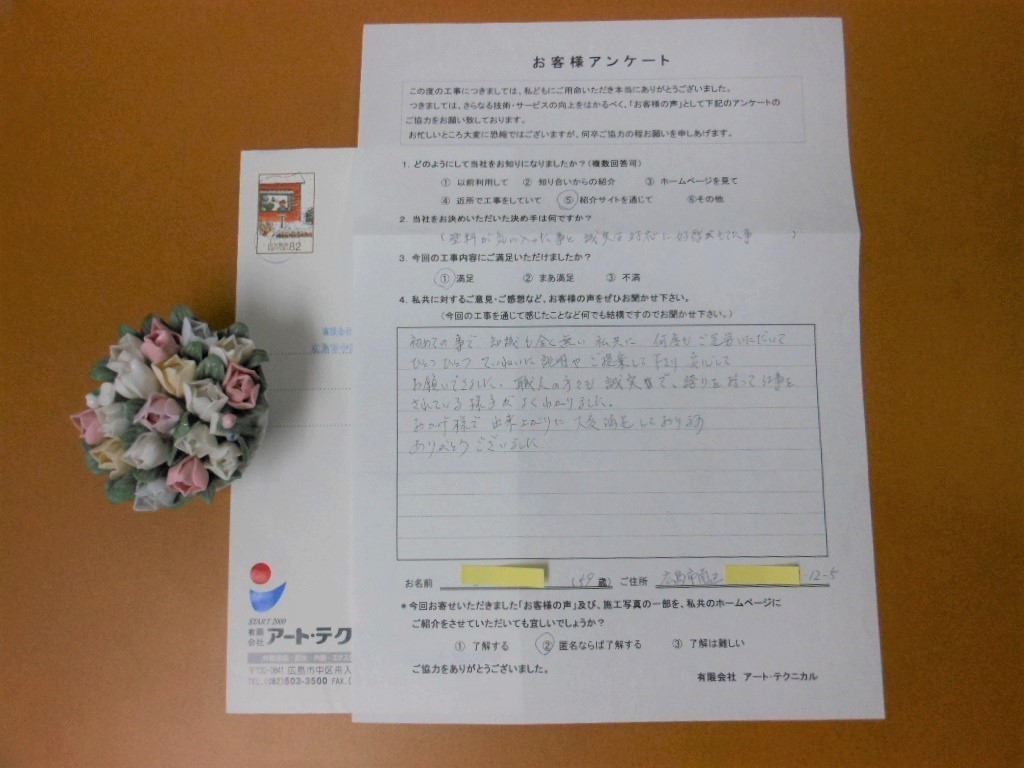 お客様アンケート
この度の工事につきましては、私どもにご用命いただき本当にありがとうございました。
つきましては、さらなる技術・サービスの向上をはかるべく、「お客様の声」として下記のアンケートの
ご協力をお願い致しております。
お忙しいところ大変に恐縮ではございますが、何卒ご協力の程お願いを申しあげます。
1. どのようにして当社をお知りになりましたか?(複数回答可)
① 以前利用して ② 知り合いからの紹介 ③ ホームページを見て
④ 近所で工事をしていて ⑤ 紹介サイトを通じて ⑥その他
2. 当社をお決めいただいた決め手は何ですか?
(塗料が気に入った事と 誠実な対応に好感がもてた事 )
3. 今回の工事内容にご満足いただけましたか?
① 満足 ② まあ満足 ③ 不満
4. 私共に対するご意見・ご感想など、お客様の声をぜひお聞かせ下さい。
(今回の工事を通じて感じたことなど何でも結構ですのでお聞かせ下さい。)
初めての事で 知識も全く無い 私共に 何度も ご足労いただいて
ひとつ ひとつ ていねいに 説明や ご提案して下さり 安心して
お願いできました。職人の方々も 誠実な方で、誇りを持って仕事を
されている様子が よくわかりました。
おかげ様で 出来上がりに 大変満足しております
ありがとうございました
お名前 (59歳) ご住所 広島市南区 -12-5
*今回お寄せいただきました「お客様の声」及び、施工写真の一部を、私共のホームページに
ご紹介をさせていただいても宜しいでしょうか?
① 了解する ② 匿名ならば了解する ③ 了解は難しい
ご協力をありがとうございました。
有限会社 アート・テクニカル
82
START 2000
有限会社 アート・テク
広島市中区舟入
TEL.(082)503-3500 FAX.(